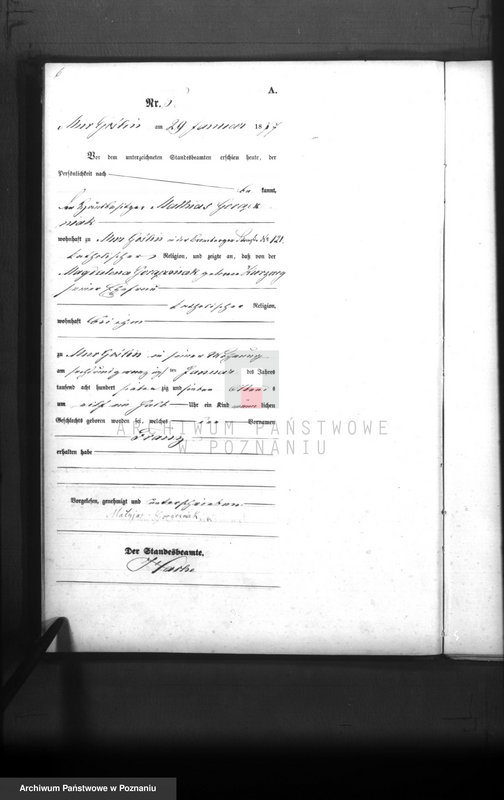 6
A.
Nr. 6
Mur Goslin am 29 Januar 1877
Vor dem unterzeichneten Standesbeamten erschien heute, der
Persönlichkeit nach
be kannt,
der Mathias
wohnhaft zu Mur Goslin in der Straße No 121
katholischer Religion, und zeigte an, daß von der
Magdalena geborene
seiner Ehefrau
katholischer Religion,
wohnhaft bei ihm
zu Mur Goslin in seiner Wohnung
am ten Januar des Jahres
tausend acht hundert sieben zig und sieben Abends
um acht ein halb Uhr ein Kind männlichen
Geschlechts geboren worden sei, welches den Vornamen
Franz
erhalten habe
Vorgelesen, genehmigt und unterschrieben
Der Standesbeamte.
ARCHIWUM PAŃSTWOWE
W POZNANIU
Archiwum Państwowe w Poznaniu